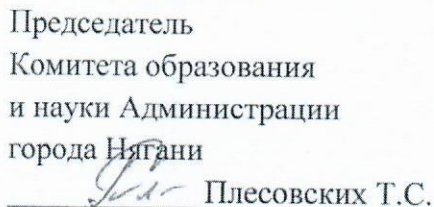 Председатель
Комитета образования
и науки Администрации
города Нягани
Плесовских Т.С.